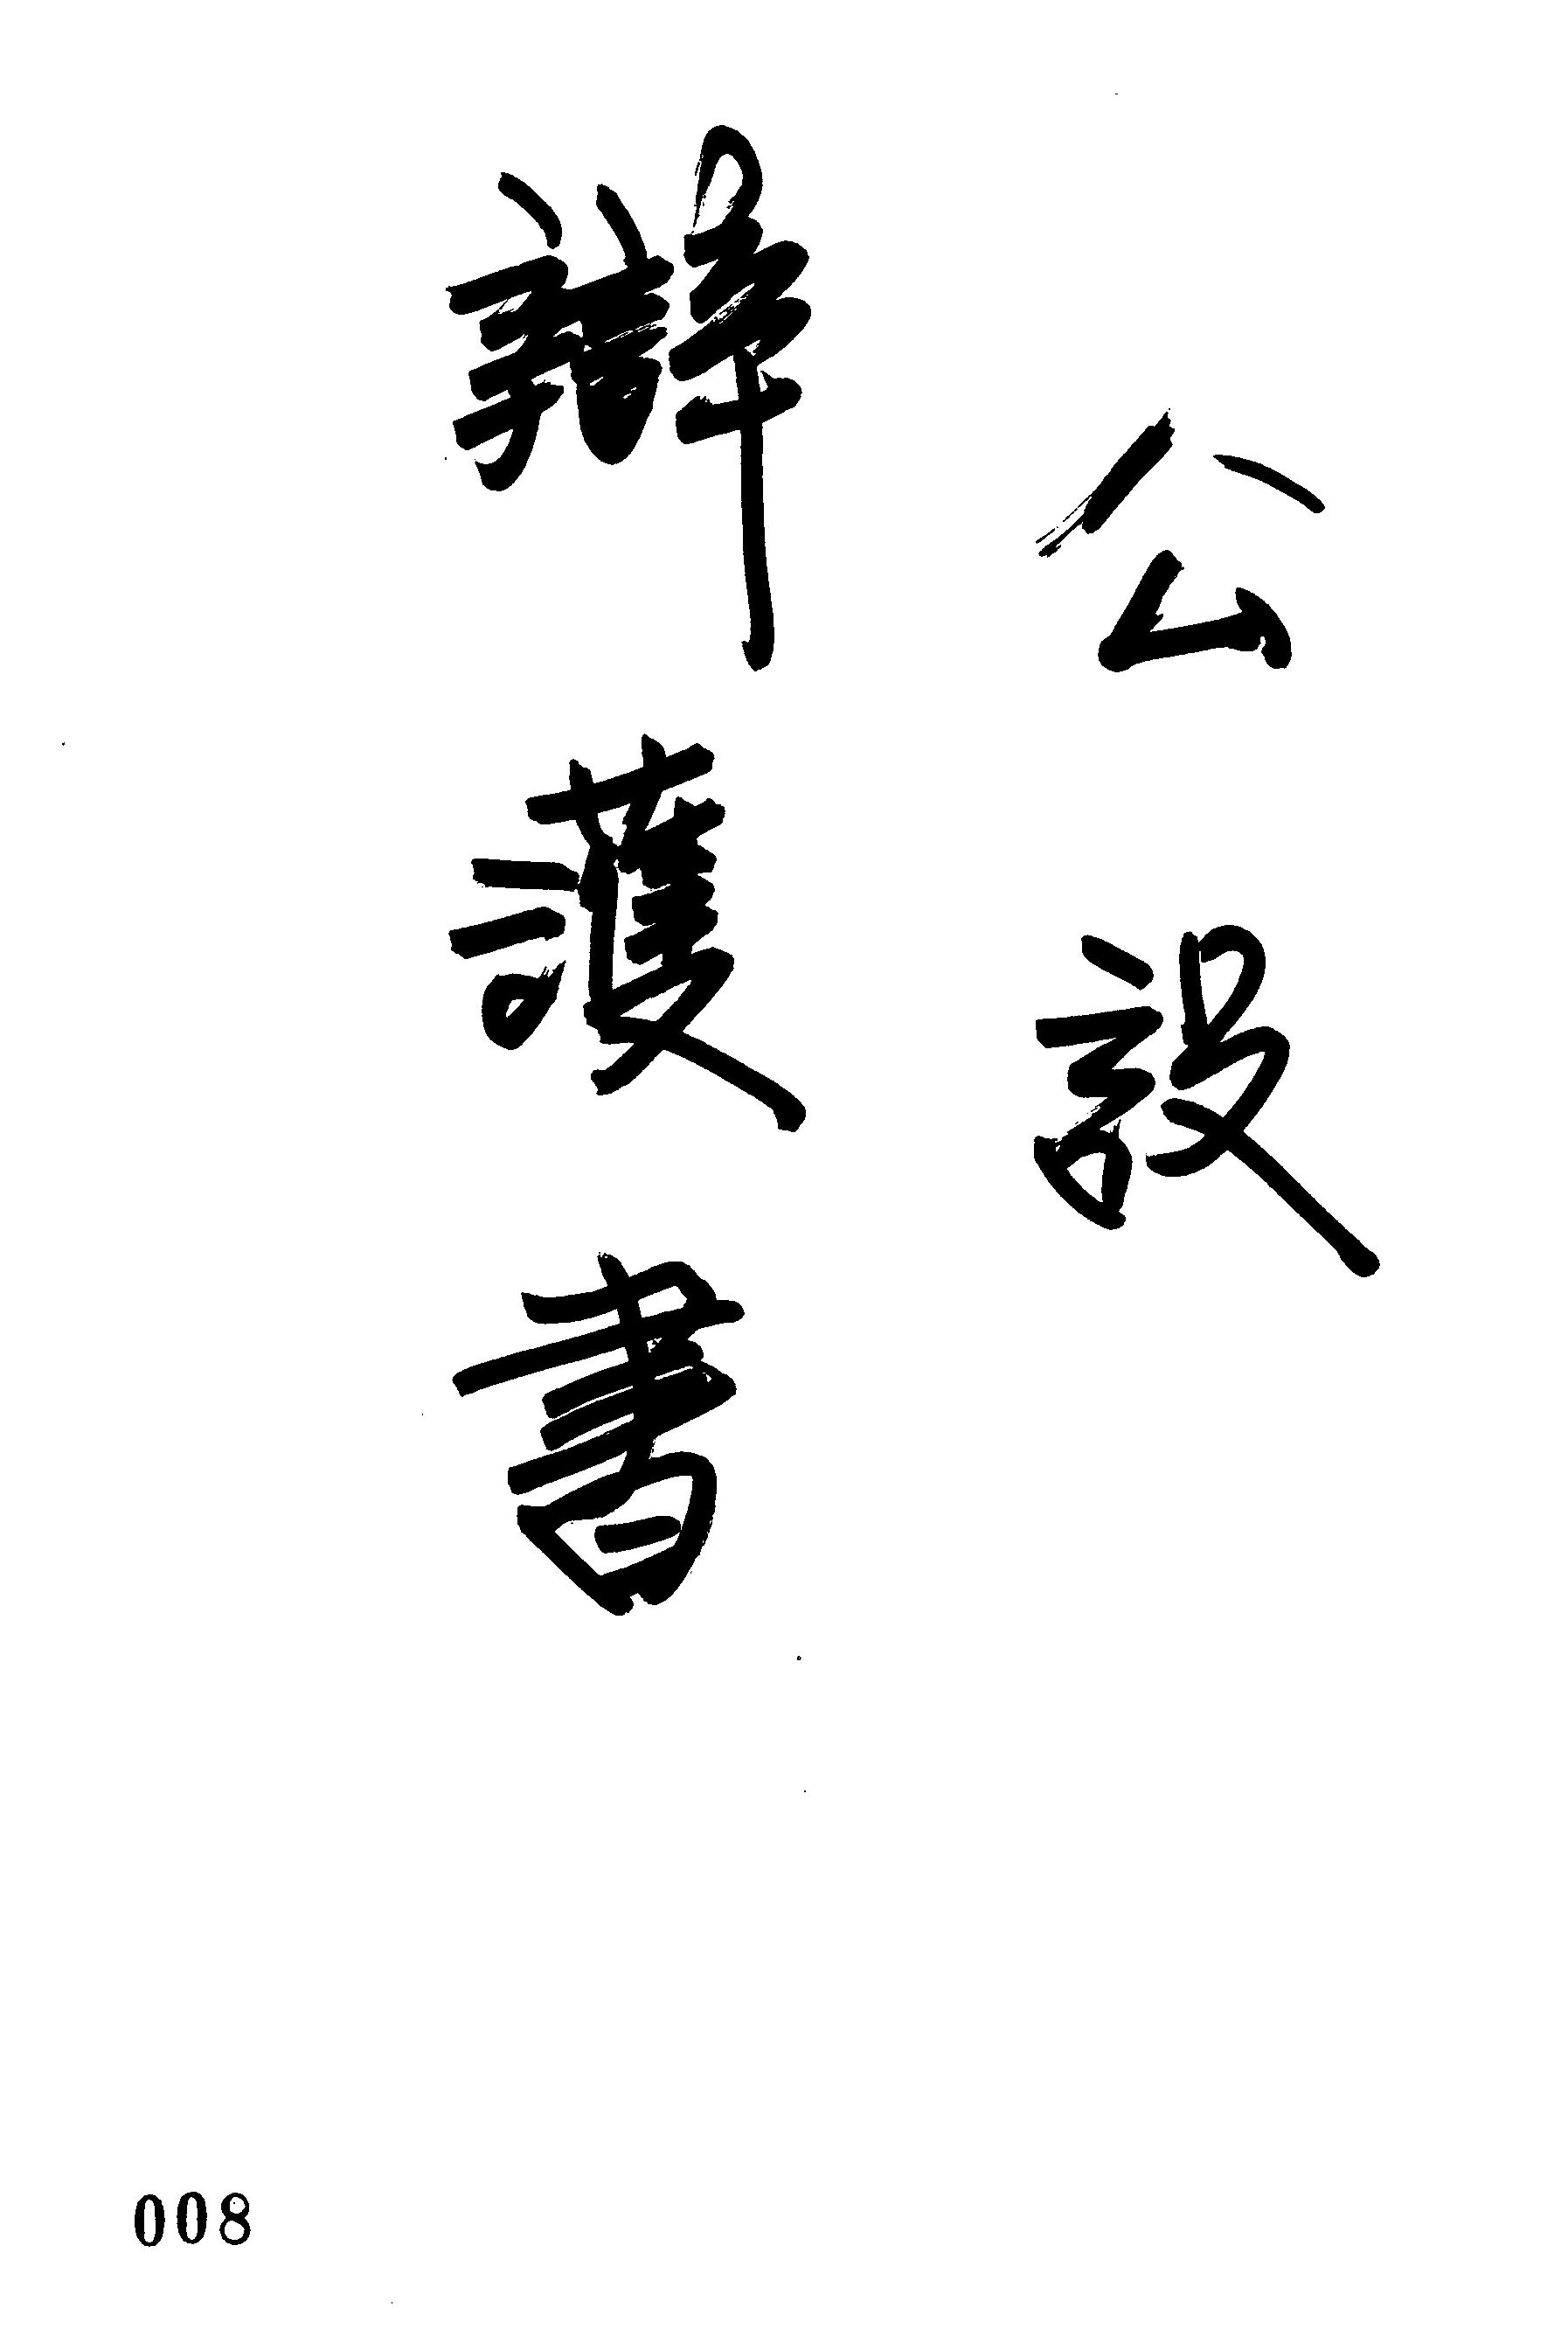 公設
辯護書
008